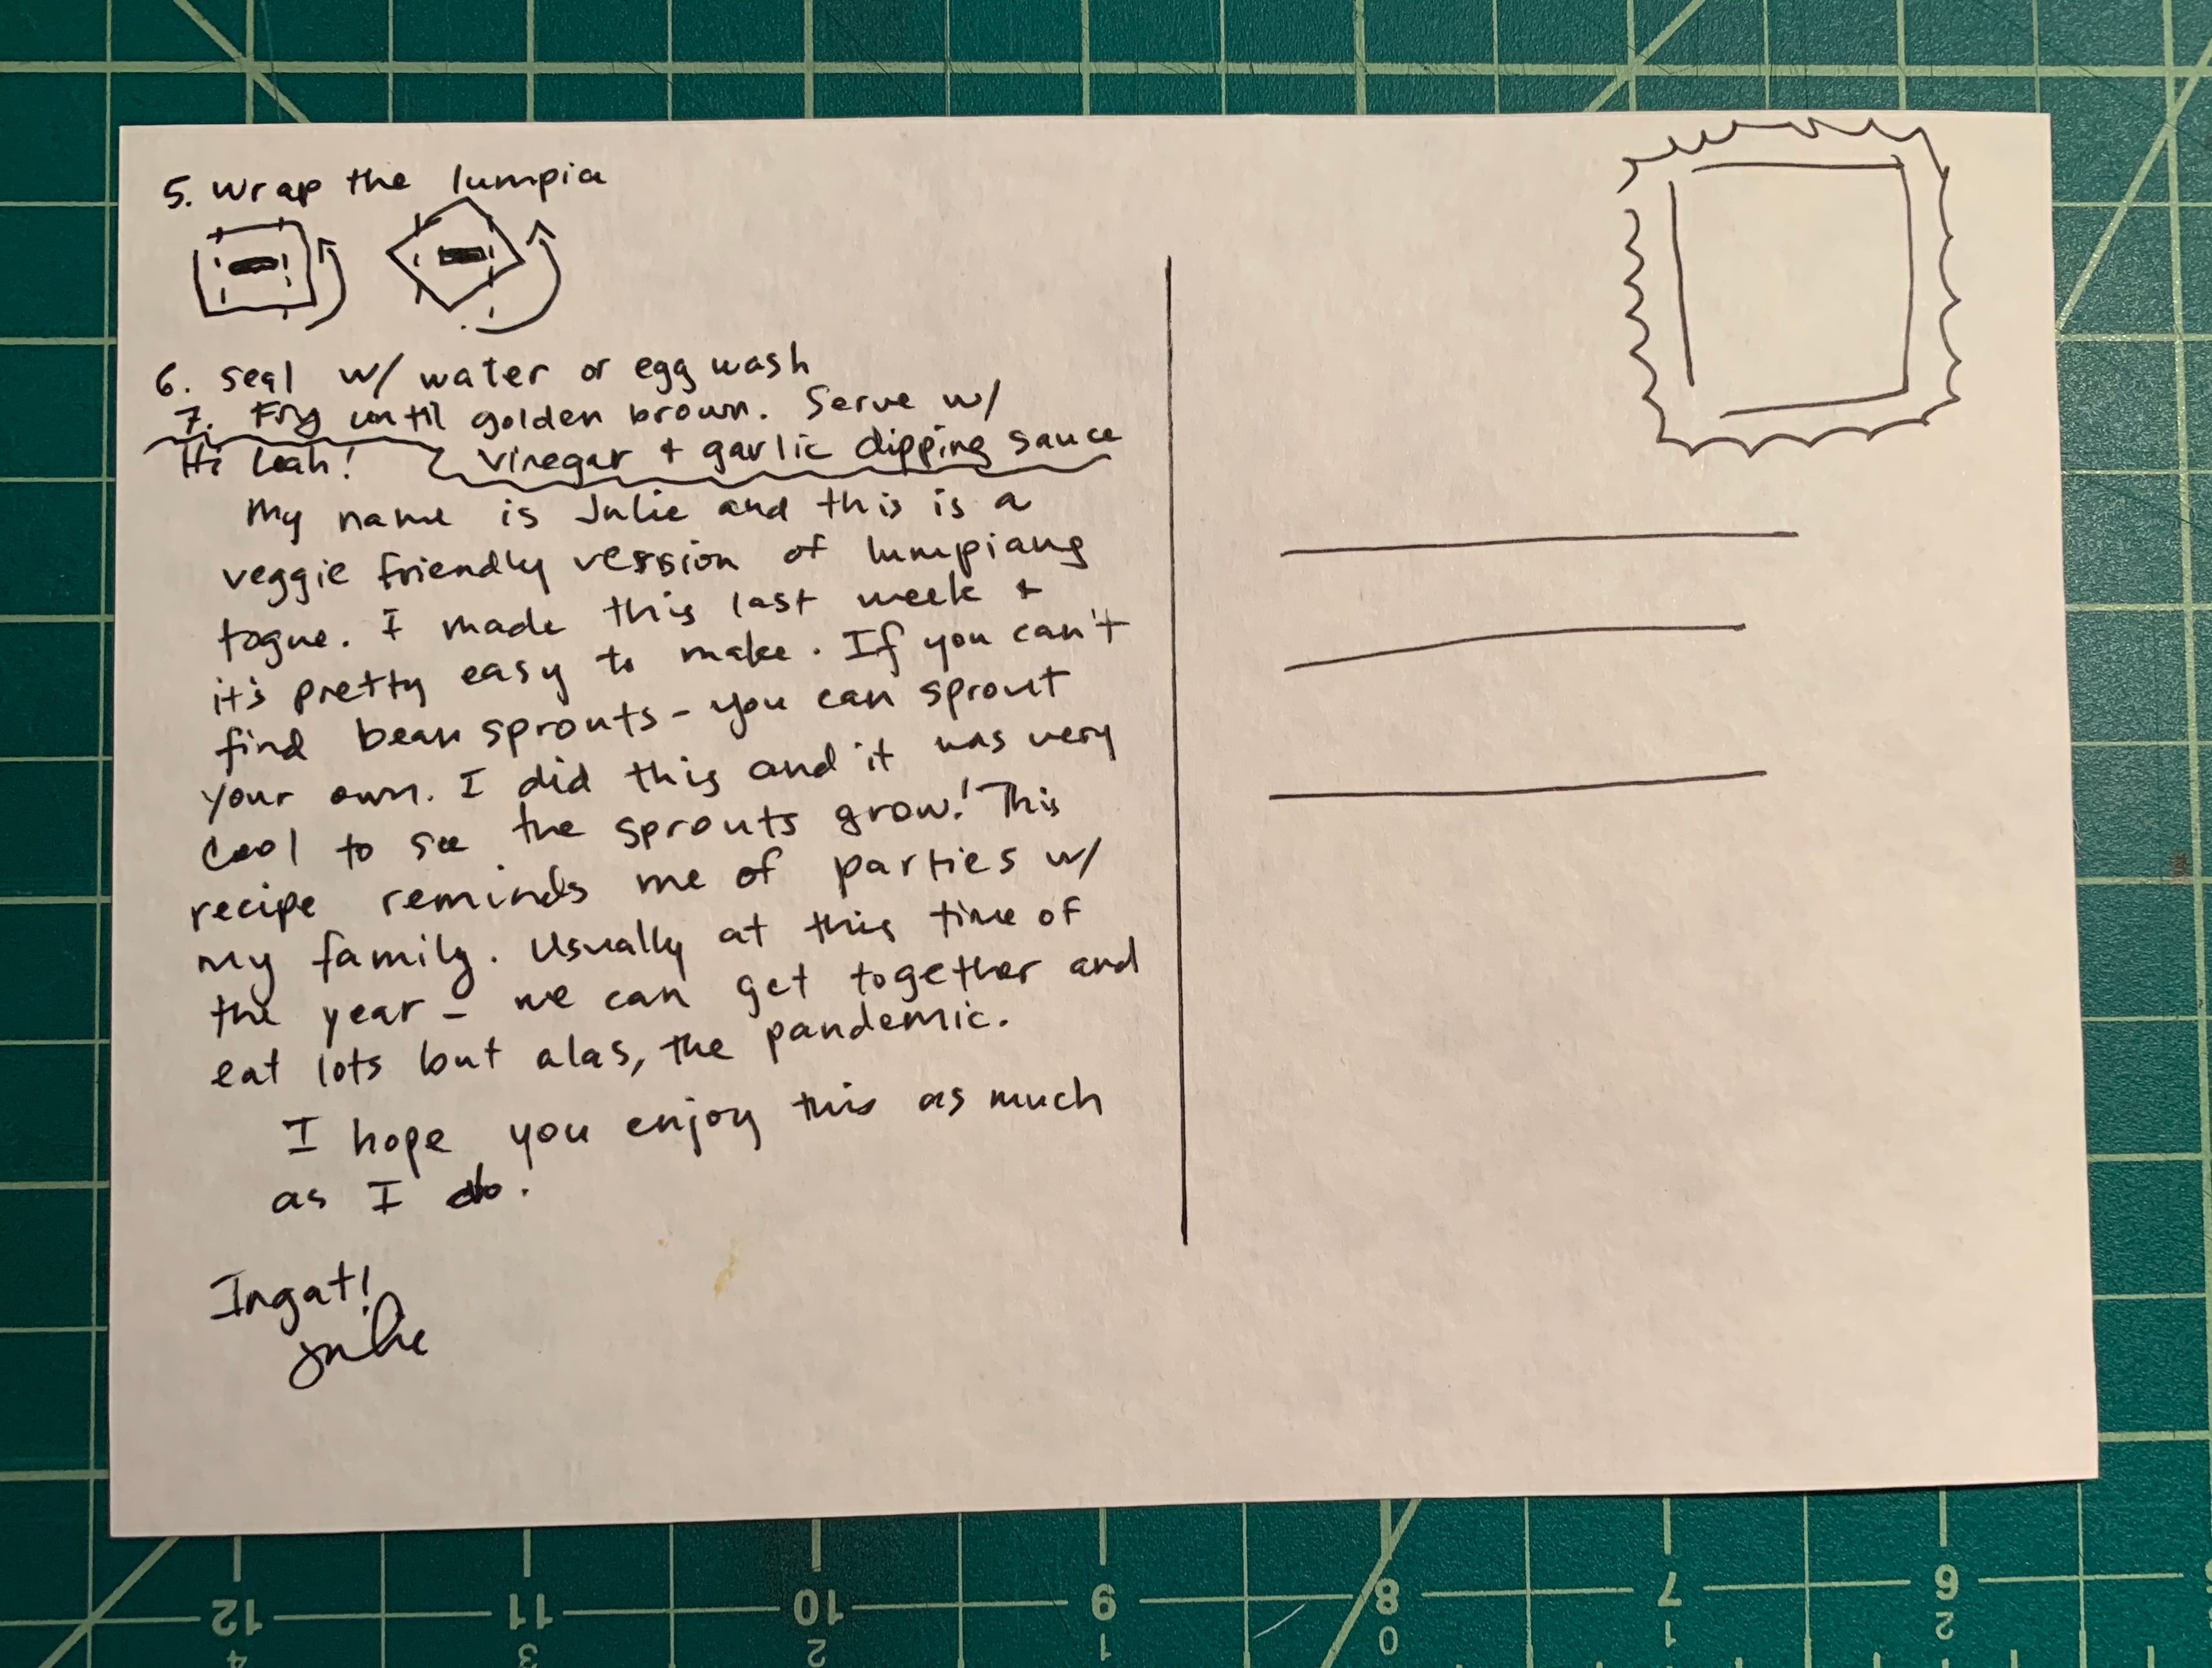 5. wrap the lumpia
6. seal w/ water or egg wash
7. Fry until golden brown. Serve w/
vinegar + garlic dipping sauce
Hi Leah!
My name is Julie and this is a
veggie friendly version of lumpiang
togue. I made this last week +
it's pretty easy to make. If you can't
find bean sprouts - you can sprout
your own. I did this and it was very
cool to see the sprouts grow! This
recipe reminds me of parties w/
my family. Usually at this time of
the year - we can get together and
eat lots but alas, the pandemic.
I hope you enjoy this as much
as I do.
Ingat!
Julie
12 11 10 9 8 7 6
4 3 2 1 0 1 2